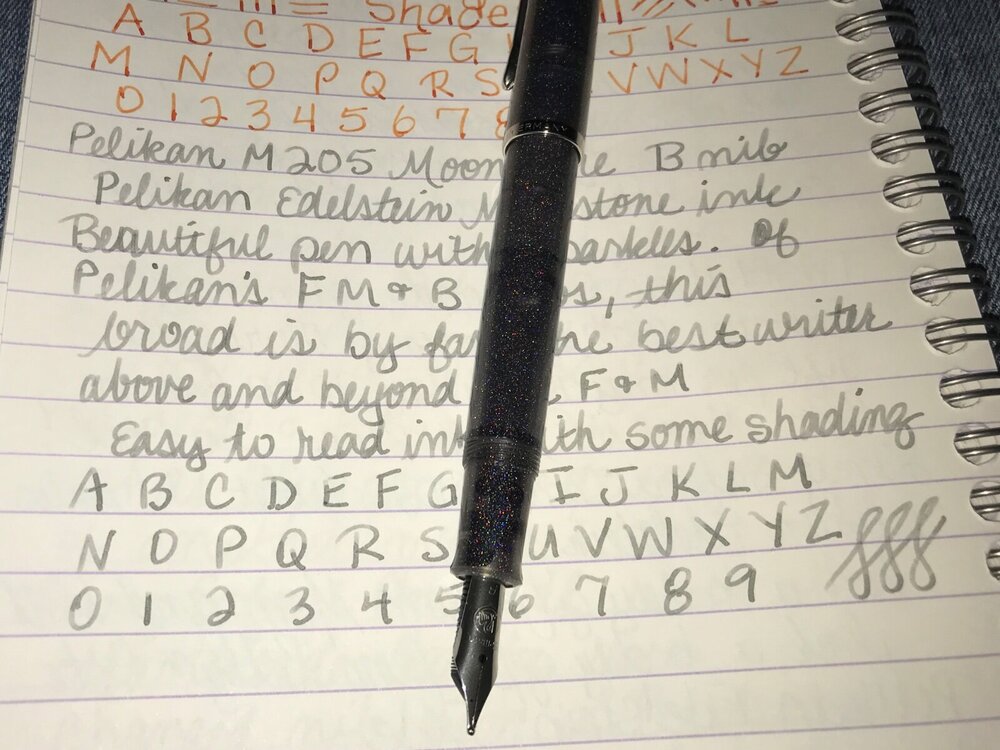 Shade
A B C D E F G J K L
M N O P Q R S V W X Y Z
0 1 2 3 4 5 6 7 8
Pelikan M205 Moon ne B nib
Pelikan Edelstein M stone ink
Beautiful pen with parkles. Of
Pelikan's F M & B s, this
broad is by far he best writer
above and beyond F & M
Easy to read ink ith some shading
A B C D E F G I J K L M
N O P Q R S U V W X Y Z
0 1 2 3 4 5 6 7 8 9